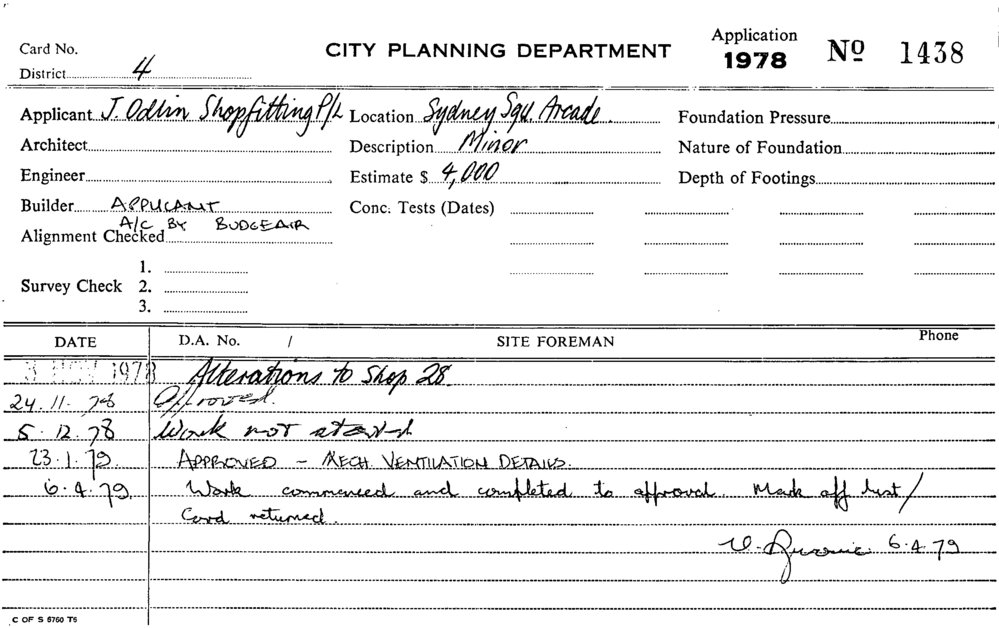 Card No. CITY PLANNING DEPARTMENT Application 1978 Nº 1438
District 4
Applicant J. Odlin Shopfitting P/L Location Sydney Squ. Arcade. Foundation Pressure
Architect Description Minor Nature of Foundation
Engineer Estimate $ 4,000 Depth of Footings
Builder APPLICANT Conc. Tests (Dates)
A/C BY BUDGEAIR
Alignment Checked
1.
Survey Check 2.
3.
DATE D.A. No. / SITE FOREMAN Phone
3 NOV 1978 Alterations to Shop 28.
24.11.78 Approved.
5.12.78 Work not started
23.1.79. APPROVED – MECH. VENTILATION DETAILS.
6.4.79. Work commenced and completed to approval. Mark off list/
Card returned.
6.4.79
C OF S 5750 T6